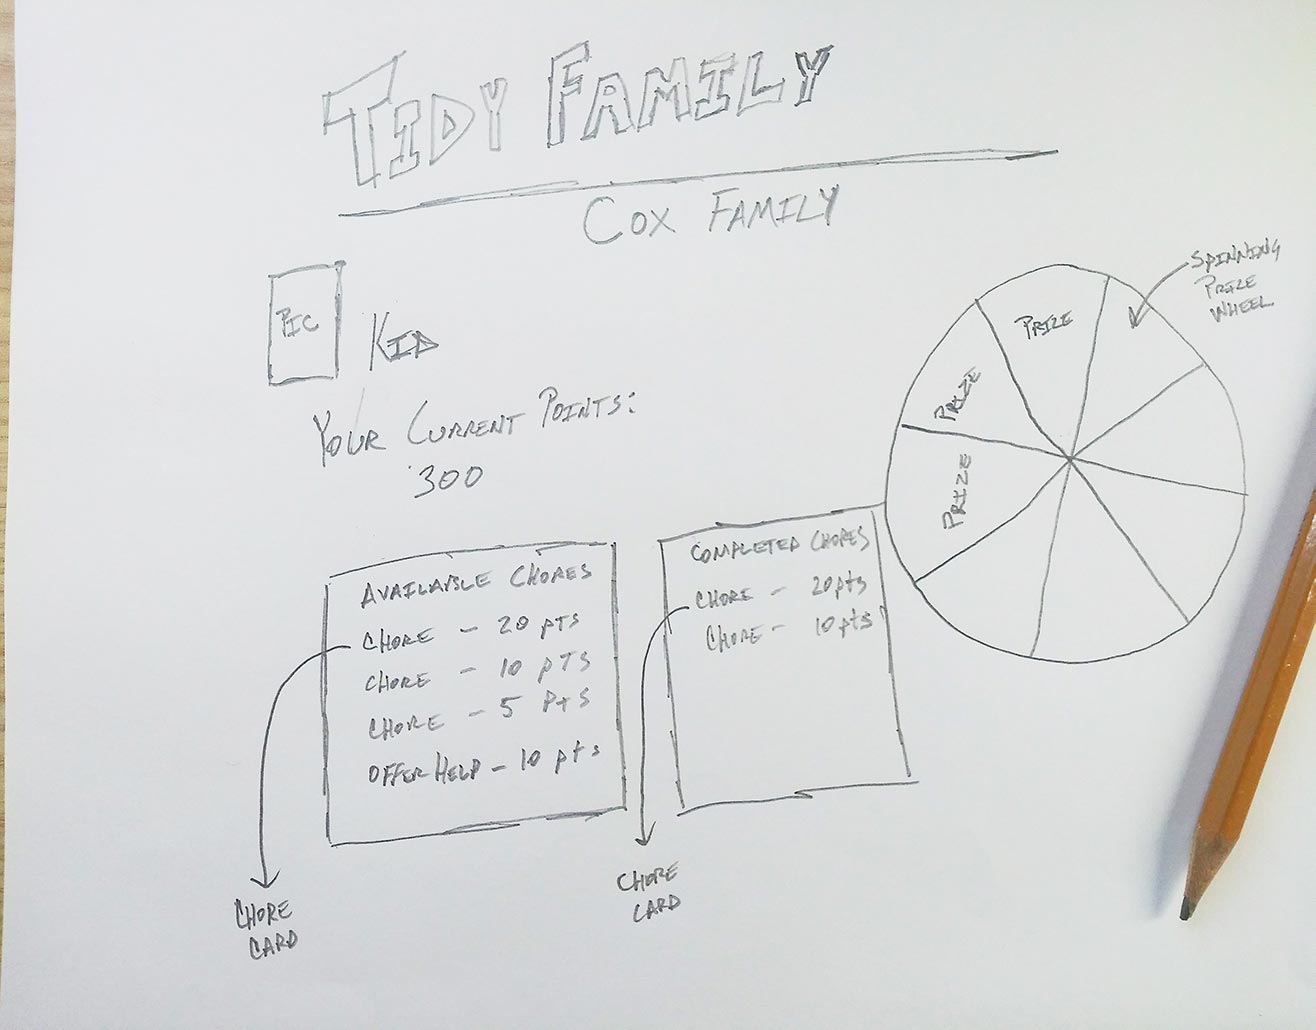 TIDY FAMILY
COX FAMILY
PIC
KID
YOUR CURRENT POINTS:
300
SPINNING
PRIZE
WHEEL
PRIZE
PRIZE
PRIZE
AVAILABLE CHORES
CHORE - 20 pts
CHORE - 10 pts
CHORE - 5 pts
OFFER HELP - 10 pts
COMPLETED CHORES
CHORE - 20pts
CHORE - 10pts
CHORE
CARD
CHORE
CARD